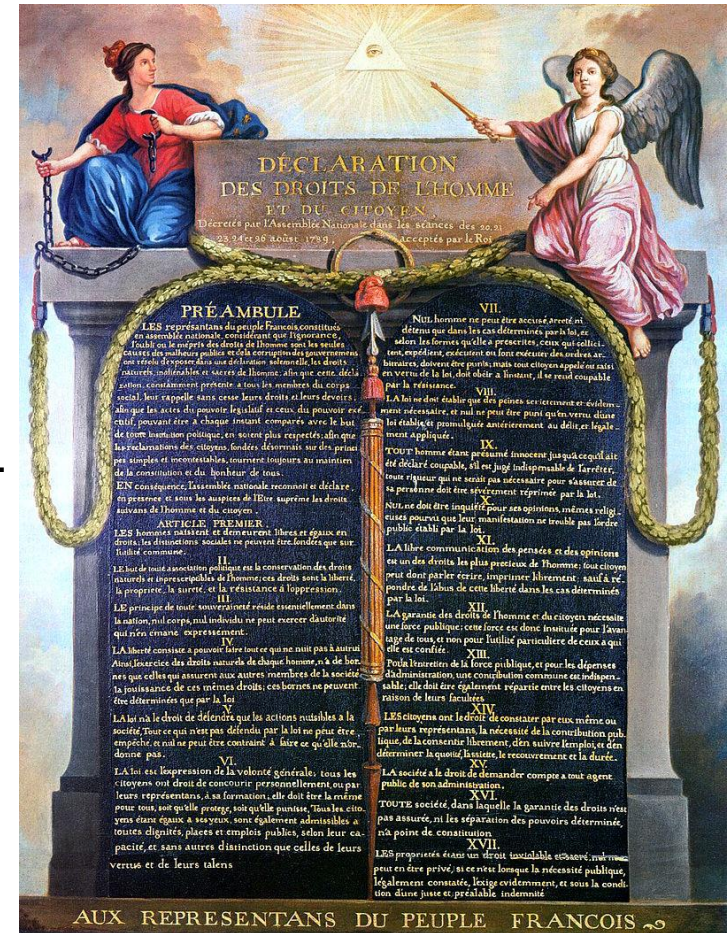 DÉCLARATION
DES DROITS DE L'HOMME
ET DU CITOYEN,
Décretés par l'Assemblée Nationale dans les séances des 20, 21
23, 24 et 26 août 1789, acceptés par le Roi
PRÉAMBULE
LES représentans du peuple François, constitués
en assemblée nationale, considérant que l'ignorance,
l'oubli ou le mépris des droits de l'homme sont les seules
causes des malheurs publics et de la corruption des gouvernemens
ont résolu d'exposer dans une déclaration solemnelle, les droits
naturels, inaliénables et sacrés de l'homme; afin que cette décla
ration, constamment présente a tous les membres du corps
social, leur rappelle sans cesse leurs droits et leurs devoirs;
afin que les actes du pouvoir legislatif et ceux du pouvoir exé
cutif, pouvant être a chaque instant comparés avec le but
de toute institution politique, en soient plus respectés; afin que
les reclamations des citoyens, fondées désormais sur des princi
pes simples et incontestables, tournent toujours au maintien
de la constitution et du bonheur de tous.
EN conséquence, l'assemblée nationale reconnoit et déclare,
en presence et sous les auspices de l'Etre suprême les droits
suivans de l'homme et du citoyen.
ARTICLE PREMIER.
LES hommes naissent et demeurent libres et égaux en
droits; les distinctions sociales ne peuvent être fondées que sur
l'utilité commune.
II.
LE but de toute association politique est la conservation des droits
naturels et inprescriptibles de l'homme; ces droits sont la liberté,
la propriété, la sureté, et la résistance à l'oppression.
III.
LE principe de toute souveraineté réside essentiellement dans
la nation, nul corps, nul individu ne peut exercer d'autorité
qui n'en émane expressement.
IV.
LA liberté consiste a pouvoir faire tout ce qui ne nuit pas à autrui
Ainsi, l'exercice des droits naturels de chaque homme, n'a de bor
nes que celles qui assurent aux autres membres de la société
la jouissance de ces mêmes droits; ces bornes ne peuvent
être déterminées que par la loi
V.
LA loi n'a le droit de défendre que les actions nuisibles a la
société. Tout ce qui n'est pas défendu par la loi ne peut être
empêché, et nul ne peut être contraint à faire ce qu'elle n'or-
donne pas.
VI.
LA loi est l'expression de la volonté générale; tous les
citoyens ont droit de concourir personnellement, ou par
leurs représentans, à sa formation; elle doit être la même
pour tous, soit qu'elle protege, soit qu'elle punisse, Tous les cito
yens étant égaux a ses yeux, sont également admissibles a
toutes dignités, places et emplois publics, selon leur ca-
pacité, et sans autres distinction que celles de leurs
vertus et de leurs talens
VII.
NUL homme ne peut être accusé, arreté, ni
détenu que dans les cas déterminés par la loi, et
selon les formes qu'elle a prescrites, ceux qui sollici-
tent, expédient, exécutent ou font exécuter des ordres ar-
bitraires, doivent être punis; mais tout citoyen appelé ou saisi
en vertu de la loi, doit obéir a l'instant, il se rend coupable
par la résistance.
VIII.
LA loi ne doit établir que des peines strictement et évidem-
ment nécessaire, et nul ne peut être puni qu'en vertu d'une
loi établie et promulguée antérierement au délit, et légale-
ment appliquée.
IX.
TOUT homme étant présumé innocent jusqu'a ce qu'il ait
été déclaré coupable, s'il est jugé indispensable de l'arrêter,
toute rigueur qui ne serait pas nécessaire pour s'assurer de
sa personne doit être sévèrement réprimée par la loi.
X.
NUL ne doit être inquiété pour ses opinions, mêmes religi-
euses pourvu que leur manifestation ne trouble pas l'ordre
public établi par la loi.
XI.
LA libre communication des pensées et des opinions
est un des droits les plus precieux de l'homme; tout citoyen
peut dont parler écrire, imprimer librement; sauf à ré-
pondre de l'abus de cette liberté dans les cas déterminés
par la loi.
XII.
LA garantie des droits de l'homme et du citoyen nécessite
une force publique; cette force est donc instituée pour l'avan
tage de tous, et non pour l'utilité particuliere de ceux a qui
elle est confiée.
XIII.
Pour l'entretien de la force publique, et pour les dépenses
d'administration, une contribution commune est indispen-
sable; elle doit être également répartie entre les citoyens en
raison de leurs facultées
XIV.
LES citoyens ont le droit de constater par eux même ou
par leurs représentans, la nécessité de la contribution pub-
lique, de la consentir librement, d'en suivre l'emploi, et d'en
déterminer la quotité, l'assiette, le recouvrement et la durée.
XV.
LA société a le droit de demander compte a tout agent
public de son administration.
XVI.
TOUTE société, dans laquelle la garantie des droits n'est
pas assurée, ni les séparation des pouvoirs déterminée,
n'a point de constitution
XVII.
LES proprietés étant un droit inviolable et sacré, nul ne
peut en être privé, si ce n'est lorsque la nécessité publique,
légalement constatée, l'exige evidemment, et sous la condi-
tion d'une juste et préalable indemnité
AUX REPRESENTANS DU PEUPLE FRANCOIS